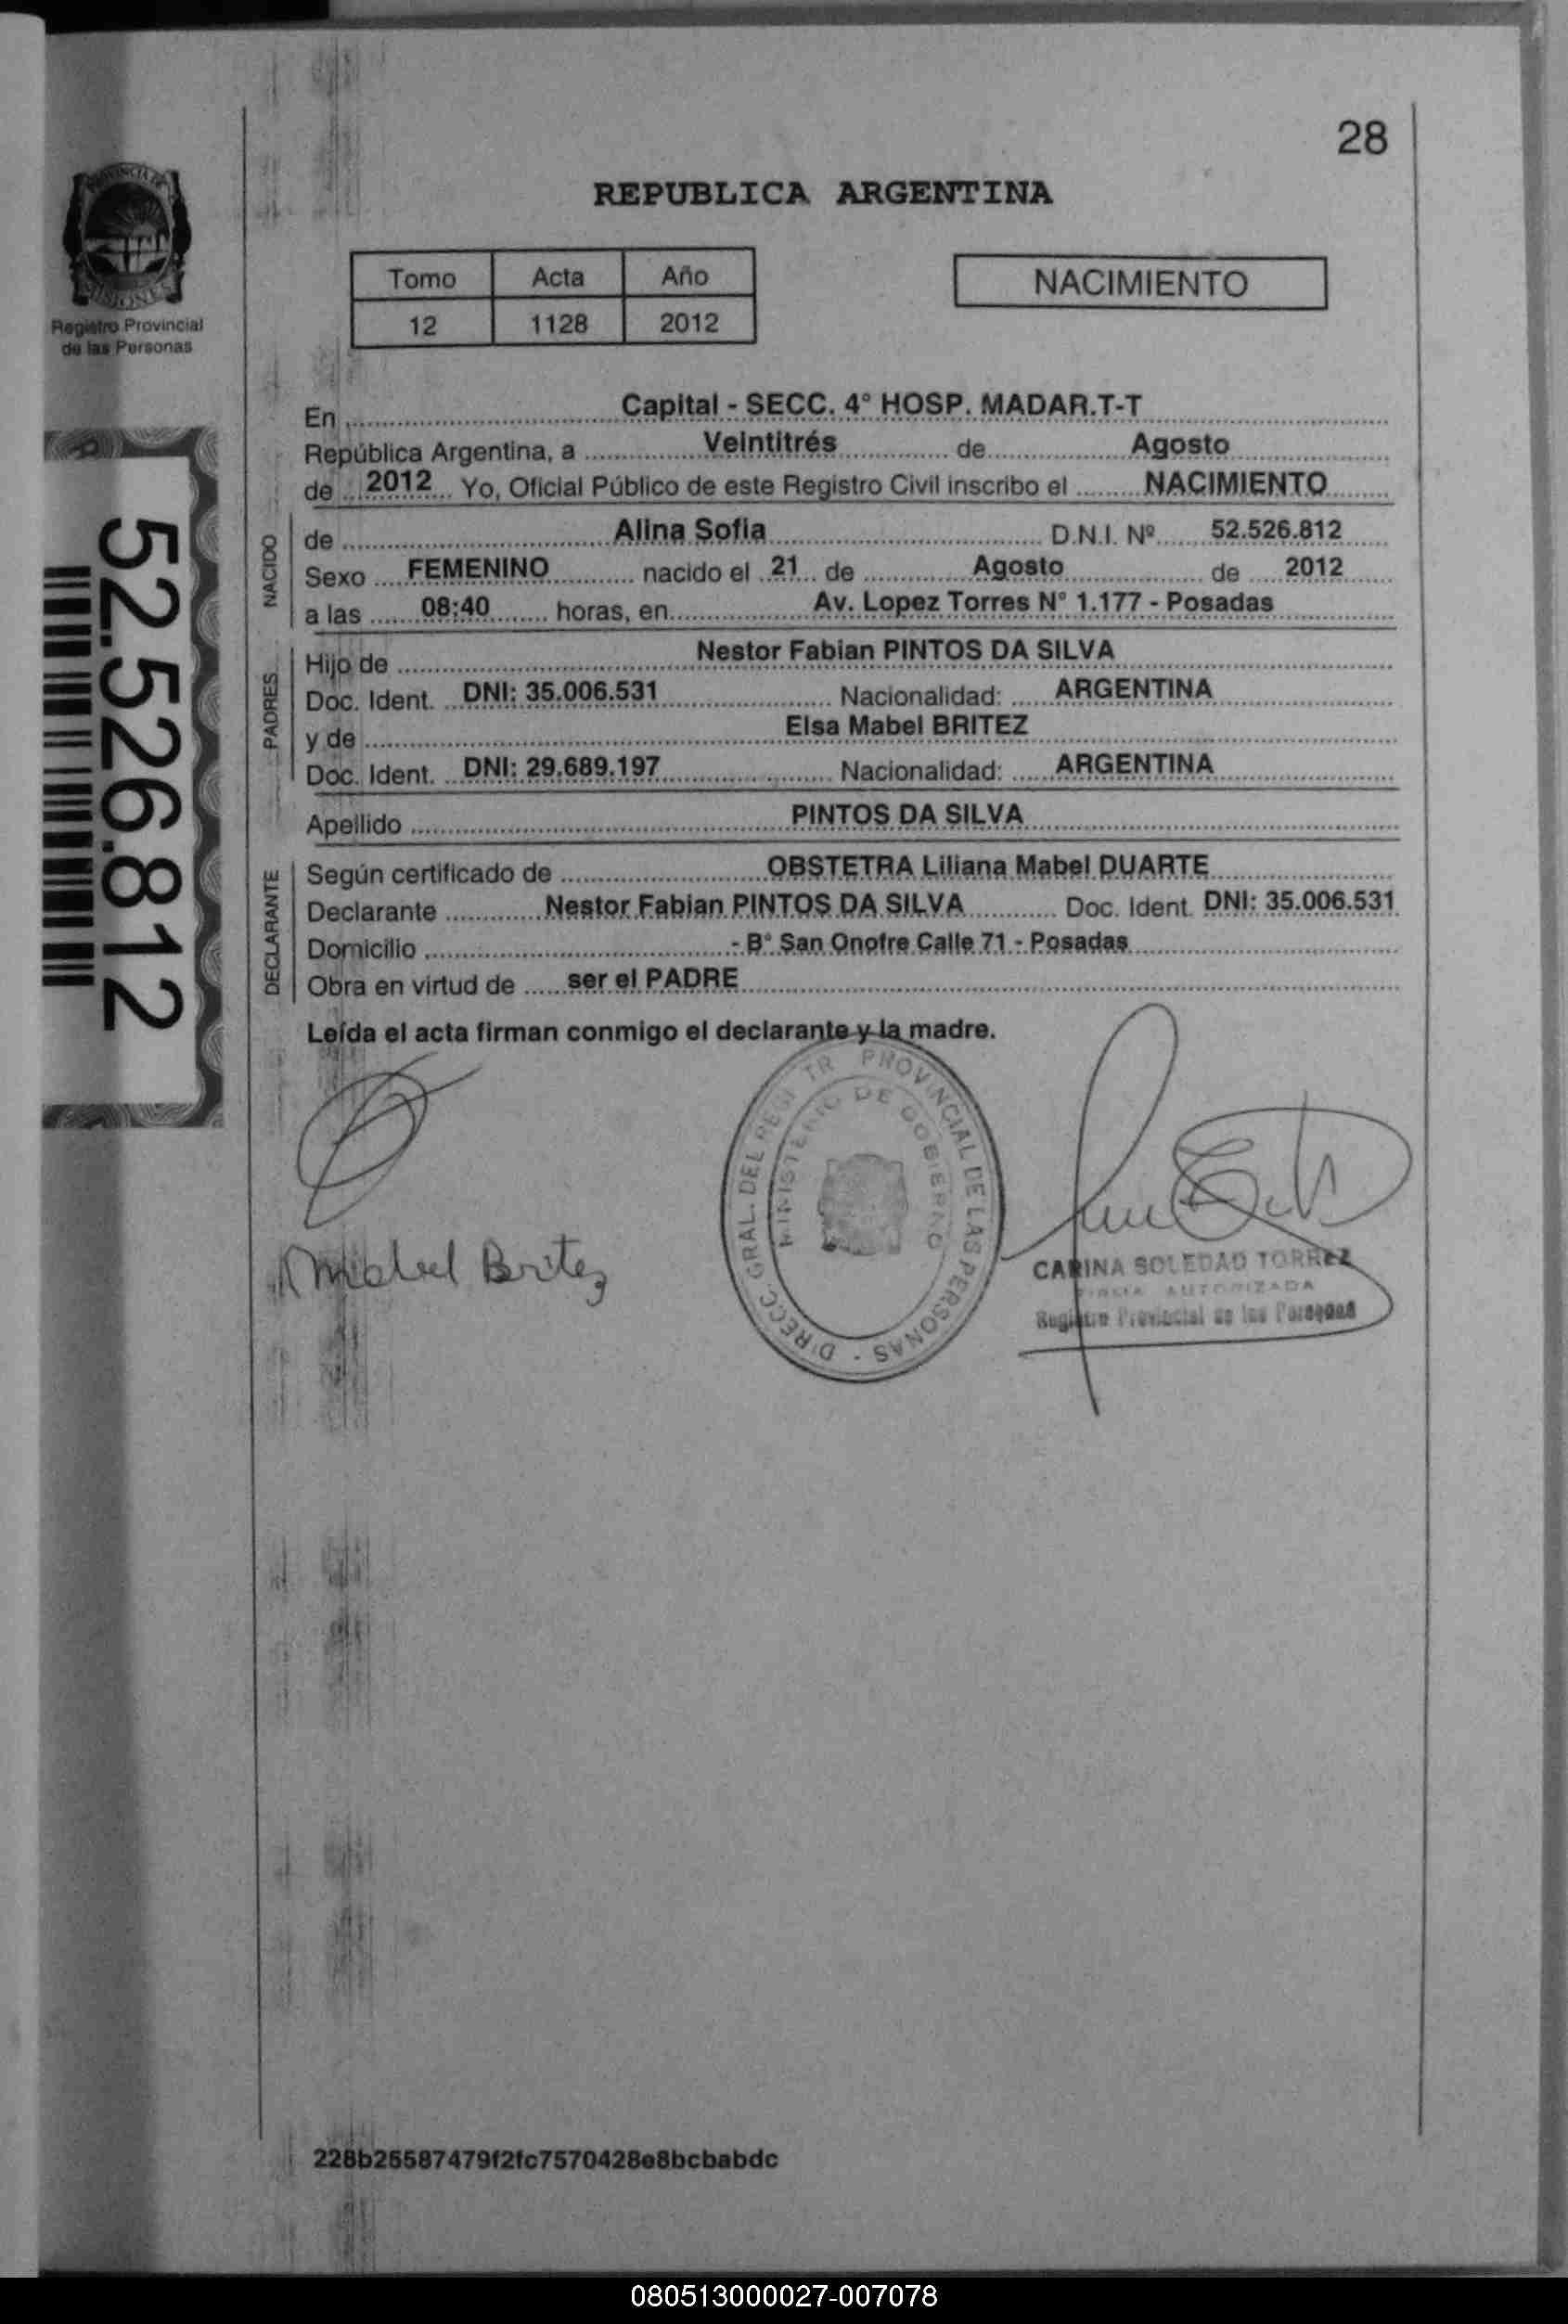 28
PROVINCIA DE
MISIONES
Registro Provincial
de las Personas
REPUBLICA ARGENTINA
Tomo Acta Año
12 1128 2012
NACIMIENTO
En Capital - SECC. 4° HOSP. MADAR.T-T
República Argentina, a Veintitrés de Agosto
de 2012 Yo, Oficial Público de este Registro Civil inscribo el NACIMIENTO
NACIDO
de Alina Sofia D.N.I. Nº 52.526.812
Sexo FEMENINO nacido el 21 de Agosto de 2012
a las 08:40 horas, en Av. Lopez Torres N° 1.177 - Posadas
PADRES
Hijo de Nestor Fabian PINTOS DA SILVA
Doc. Ident. DNI: 35.006.531 Nacionalidad: ARGENTINA
y de Elsa Mabel BRITEZ
Doc. Ident. DNI: 29.689.197 Nacionalidad: ARGENTINA
Apellido PINTOS DA SILVA
DECLARANTE
Según certificado de OBSTETRA Liliana Mabel DUARTE
Declarante Nestor Fabian PINTOS DA SILVA Doc. Ident. DNI: 35.006.531
Domicilio - B° San Onofre Calle 71 - Posadas
Obra en virtud de ser el PADRE
Leída el acta firman conmigo el declarante y la madre.
52.526.812
Mabel Britez
DIRECC. GRAL. DEL REGISTR PROVINCIAL DE LAS PERSONAS -
MINISTERIO DE GOBIERNO
CARINA SOLEDAD TORREZ
FIRMA AUTORIZADA
Registro Provincial de las Personas
228b26587479f2fc7570428e8bcbabdc
080513000027-007078